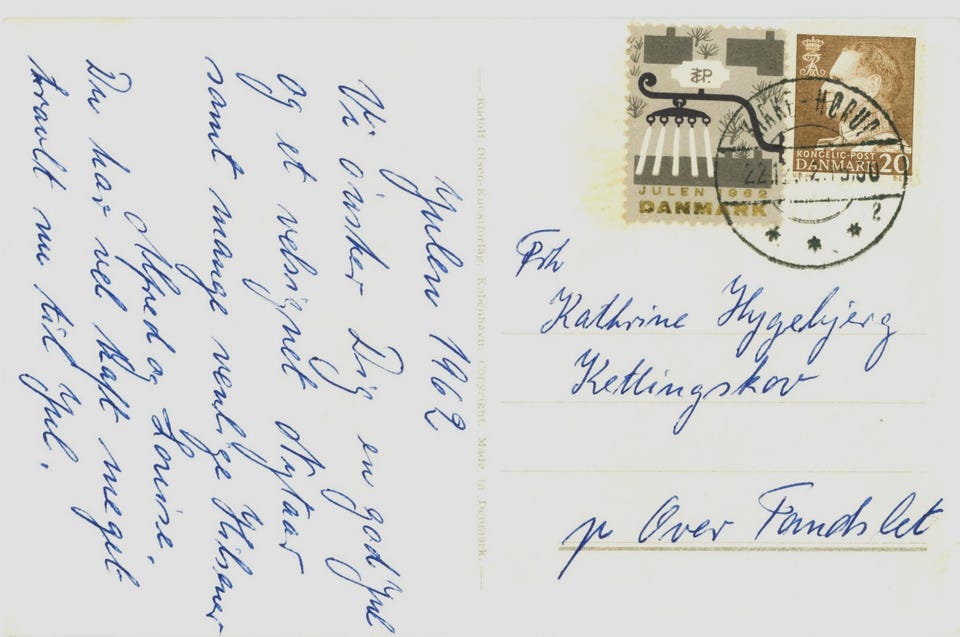 Julen 1962
Vi önsker Dig en god Jul
og et velsignet Nytaar
samt mange venlige Hilsener
Alfred og Louise.
Du har vel haft meget
travlt nu til Jul.
Rudolf Olsens Kunstforlag, København. Copyright. Made in Denmark.
EP.
JULEN 1962
DANMARK
KONGELIG-POST
DANMARK 20
2
Frk
Kathrine Hygebjerg
Kettingskov
pr Over Tandslet